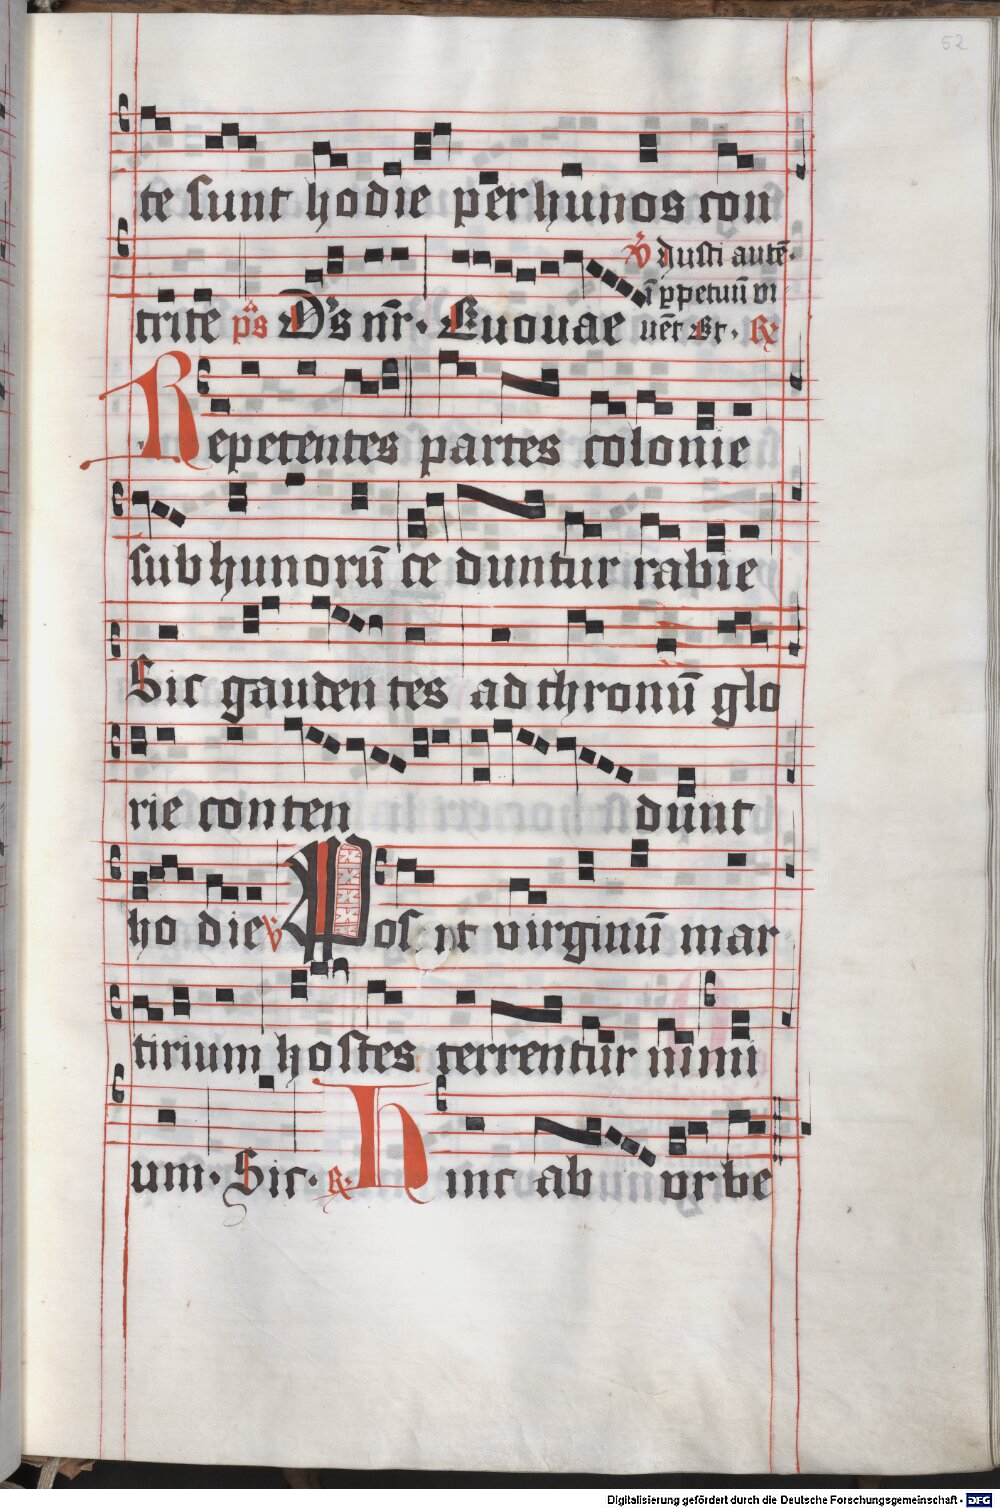 52
te sunt hodie per hunos con
trite p̄s D̄s nr̄. Euouae
℣ Iusti autē
ī ꝑpetuū vi
uēt Et. ℟
Repetentes partes colonie
sub hunorū ce duntur rabie
Sic gauden tes ad thronū glo
rie conten dunt
ho die ℣ Pos nt virginū mar
tirium hostes terrentur nimi
um. Sic. ℟ Hinc ab vrbe
Digitalisierung gefördert durch die Deutsche Forschungsgemeinschaft - DFG